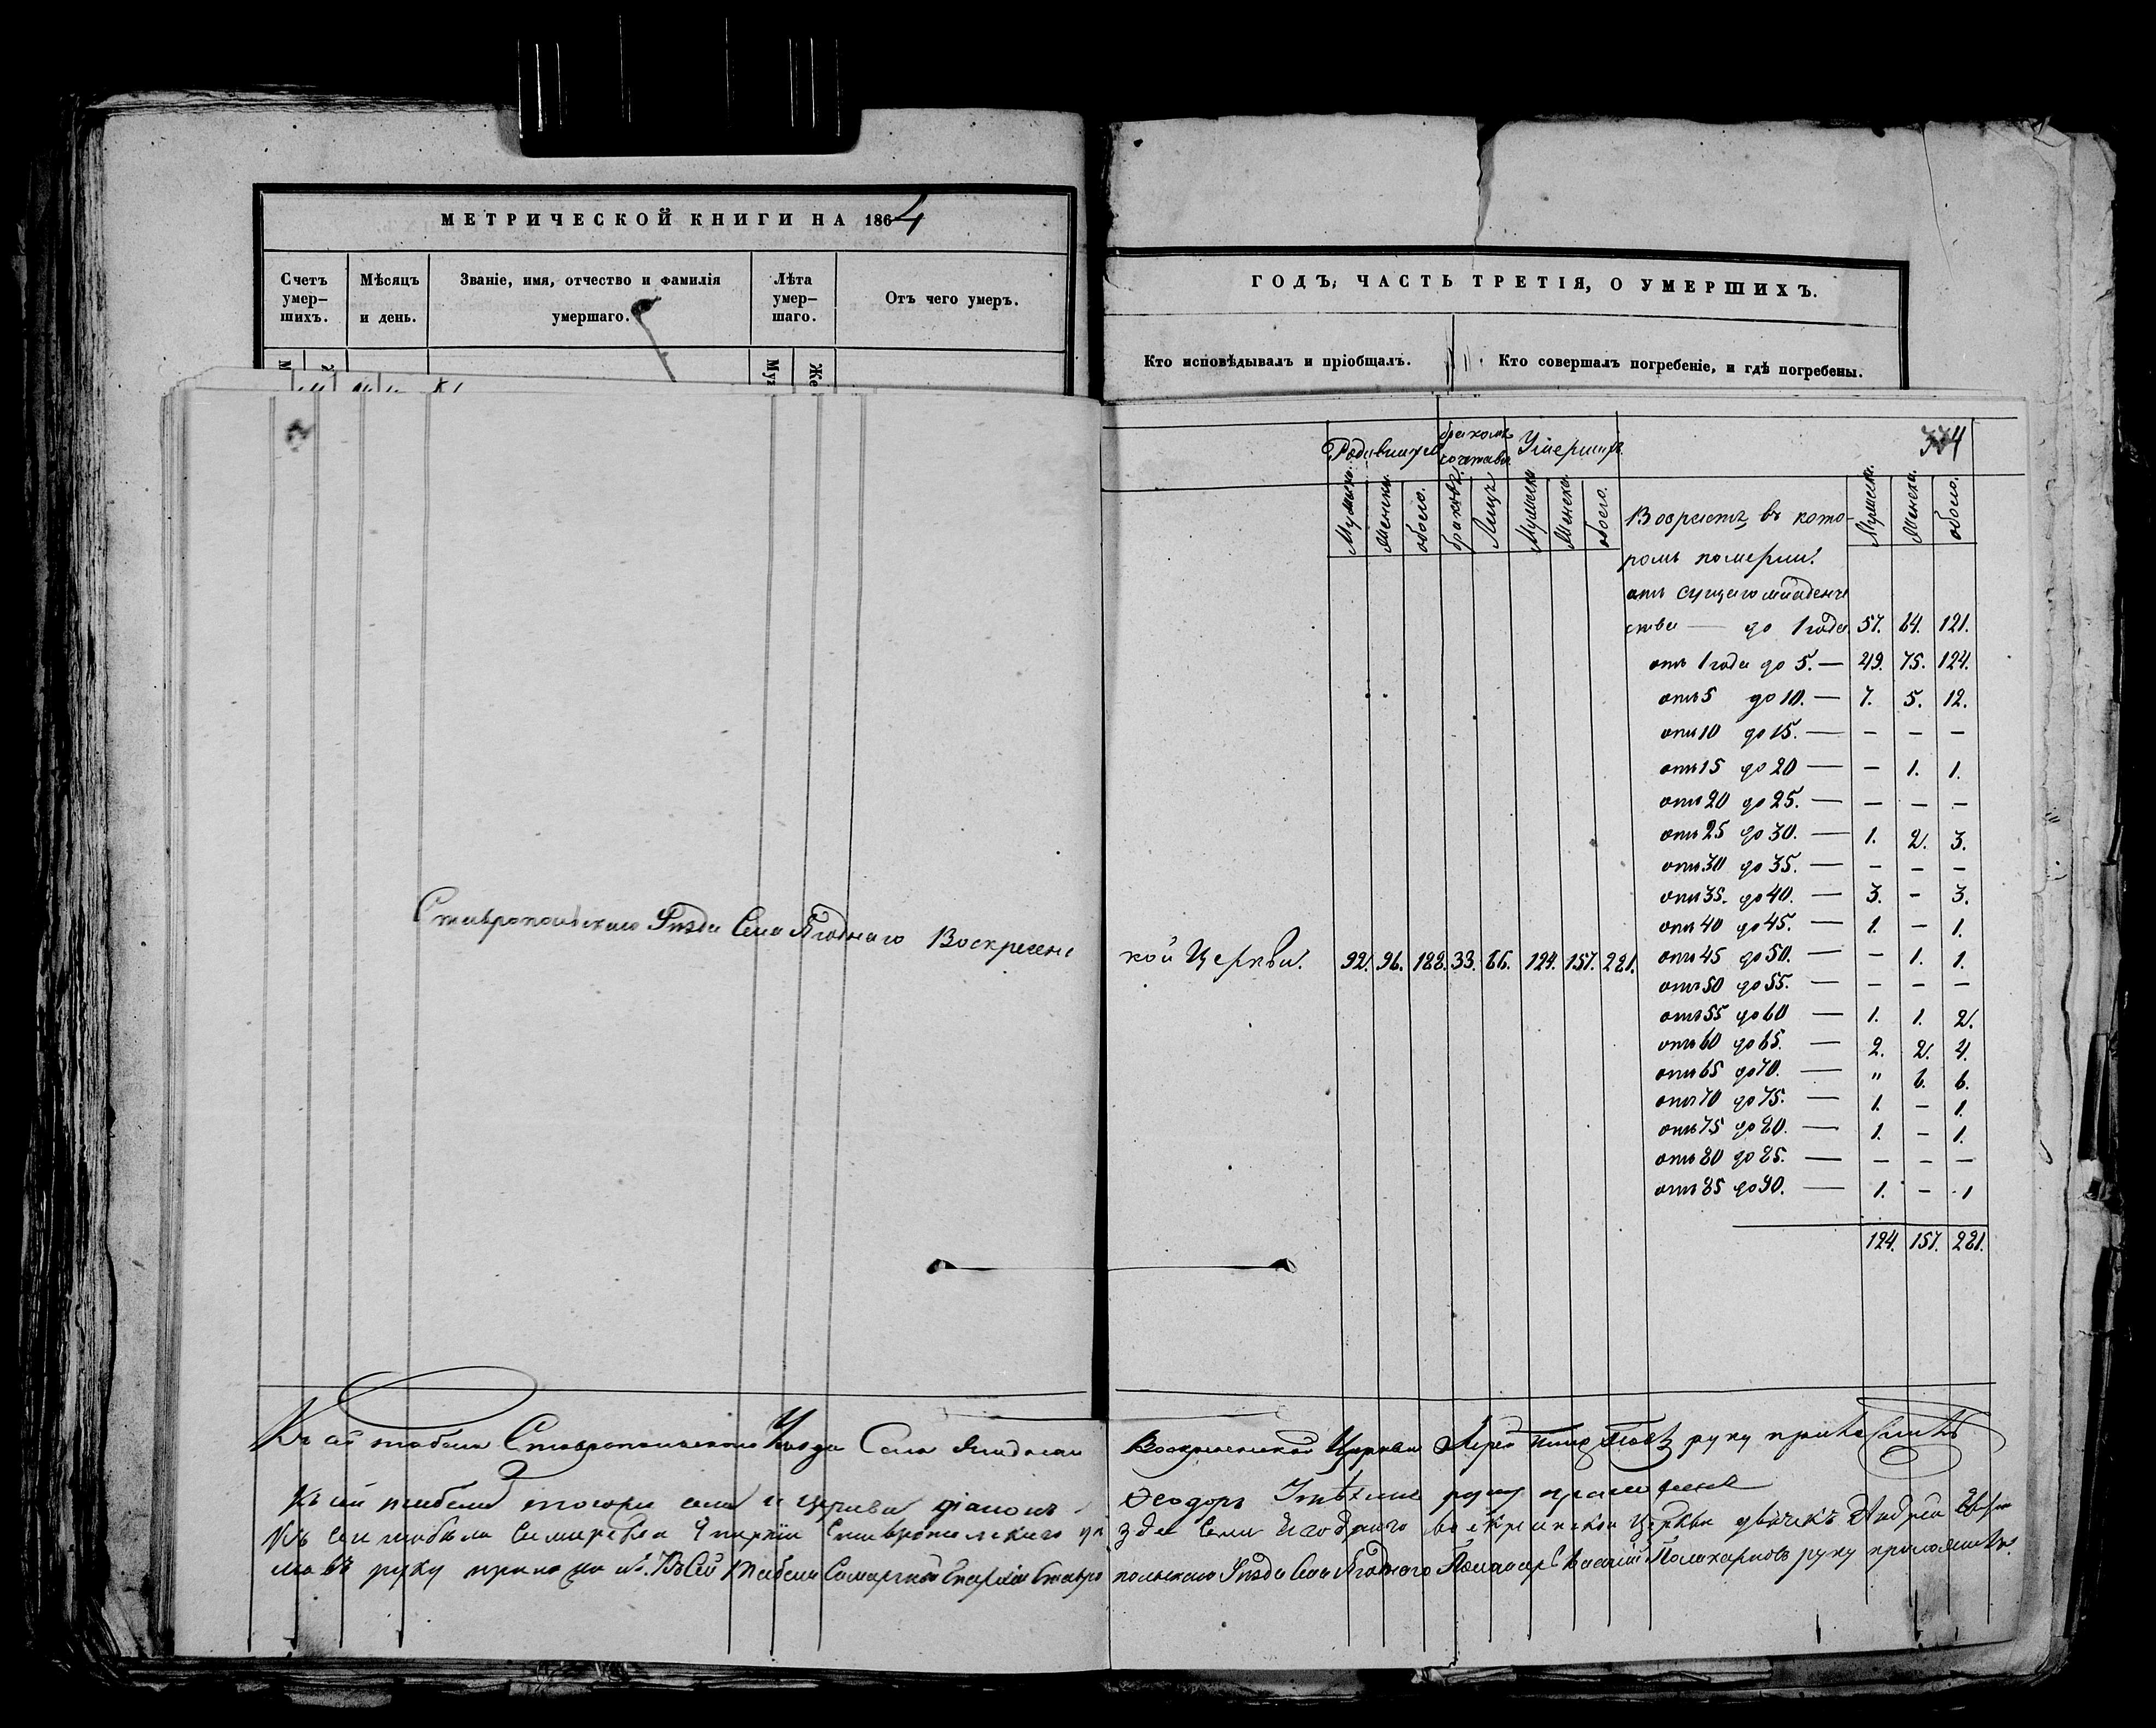 МЕТРИЧЕСКОЙ КНИГИ НА 1864
Счетъ умер- шихъ.
Мѣсяцъ и день.
Званіе, имя, отчество и фамилія умершаго.
Лѣта умер- шаго.
Отъ чего умеръ.
ГОДЪ, ЧАСТЬ ТРЕТІЯ, О УМЕРШИХЪ.
Кто исповѣдывалъ и пріобщалъ.
Кто совершалъ погребеніе, и гдѣ погребены.
Родившихся
бракомъ сочетав.
Умершихъ
Мужеска. Женска. обоего. браковъ. Лицъ. Мужеска Женска. обоего.
Возрастъ въ кото-
ромъ померли:
Мужеска. Женска. обоего.
отъ сущаго младенче
ства — до 1 года 57. 64. 121.
отъ 1 года до 5. — 49. 75. 124.
отъ 5 до 10. — 7. 5. 12.
отъ 10 до 15. — - - -
отъ 15 до 20 — - 1. 1.
отъ 20 до 25. — - - -
отъ 25 до 30. — 1. 2. 3.
отъ 30 до 35. — - - -
отъ 35. до 40. — 3. - 3.
отъ 40 до 45. — 1. - 1.
отъ 45 до 50. — - 1. 1.
отъ 50 до 55. — - - -
отъ 55 до 60 — 1. 1. 2.
отъ 60 до 65. — 2. 2. 4.
отъ 65 до 70. — " 6. 6.
отъ 70 до 75. — 1. - 1.
отъ 75 до 80. — 1. - 1.
отъ 80 до 85. — - - -
отъ 85 до 90. — 1. - 1
124. 157. 281.
Ставропольскаго Уѣзда Села Ягоднаго Воскресенс
кой Церкви. 92. 96. 188. 33. 66. 124. 157. 281.
Къ сей табели Ставропольскаго Уѣзда Села Ягоднаго Воскресенской Церкви Іерей руку приложилъ
Къ сей табели тогоже села и церкви діаконъ Ѳеодоръ руку приложилъ
Къ сей табели Самарской Епархіи Ставропольскаго уѣ зда Села Ягоднаго Воскресенской Церкви дьячекъ Андрей
руку приложилъ. Къ Сей табели Самарской Епархіи Ставро польскаго Уѣзда Села Ягоднаго Пономарь Василій Поликарповъ руку приложилъ.